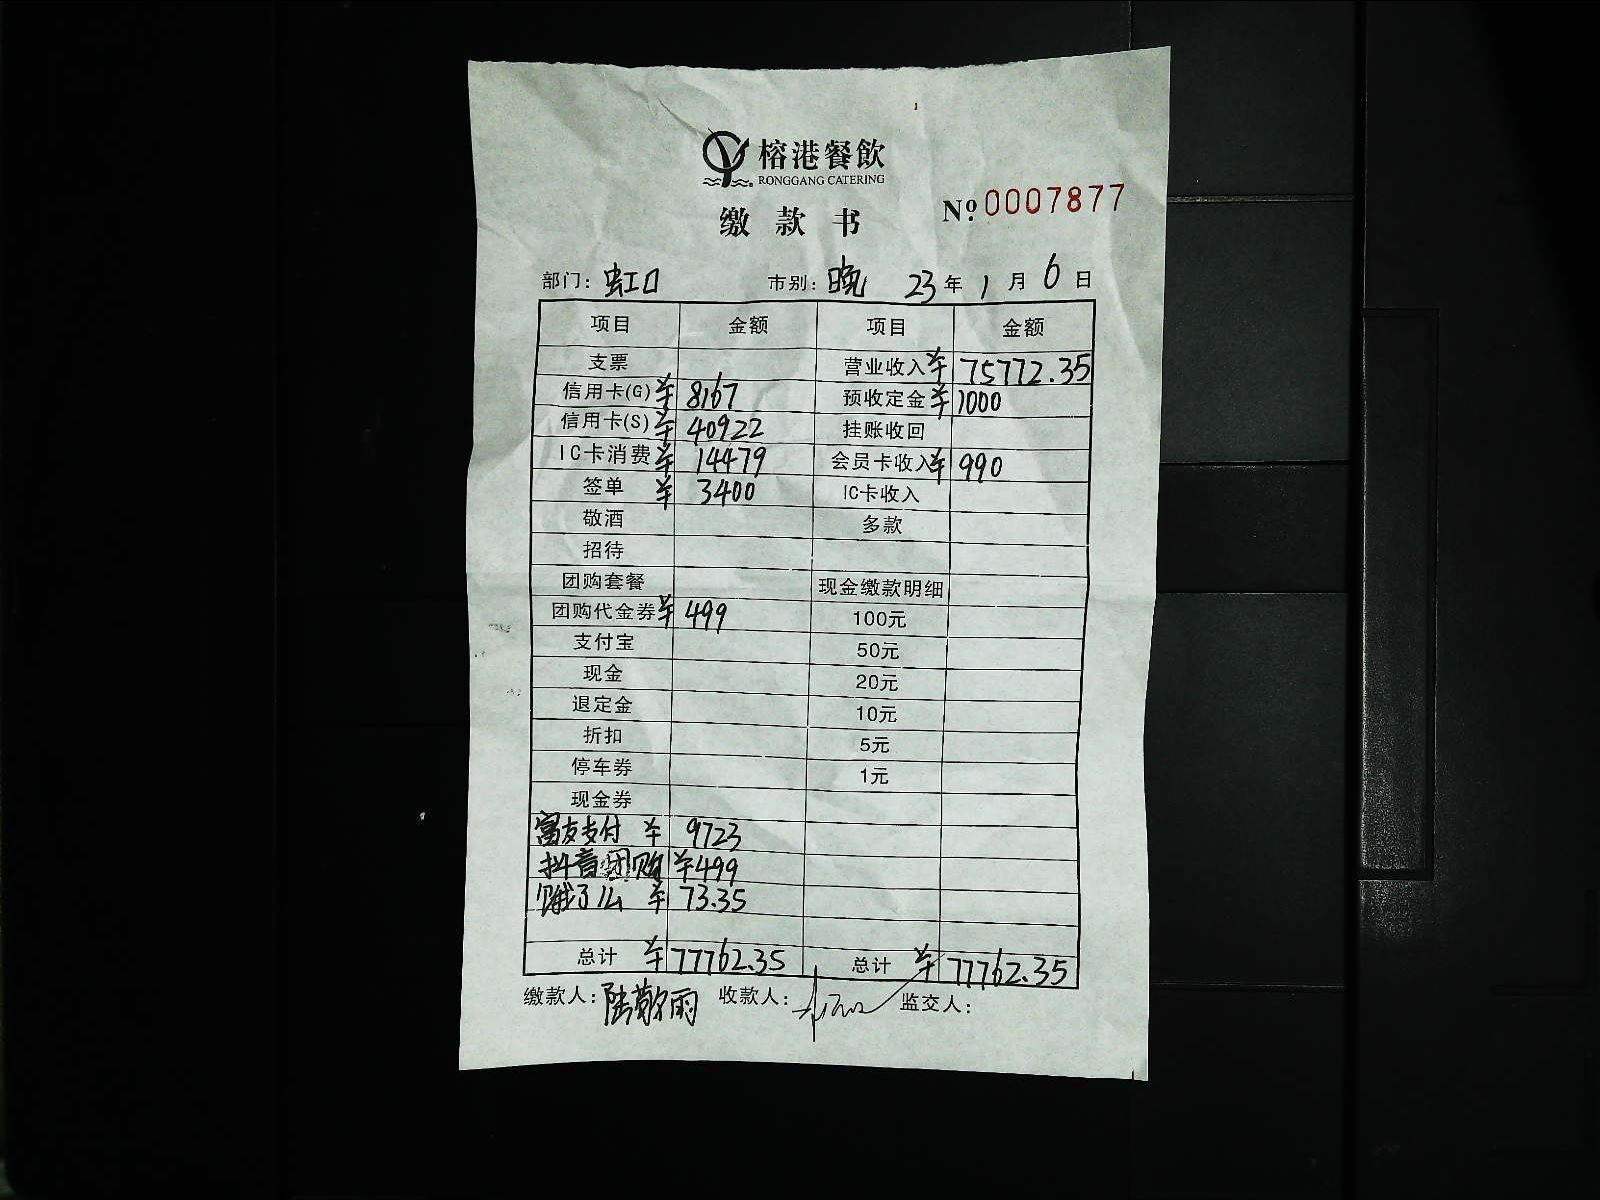 榕港餐飲
RONGGANG CATERING
缴款书
Nº 0007877
部门: 虹口 市别: 晚 23年1月6日
项目 金额 项目 金额
支票 营业收入 ¥75772.35
信用卡(G) ¥8167 预收定金 ¥1000
信用卡(S) ¥40922 挂账收回
IC卡消费 ¥14479 会员卡收入 ¥990
签单 ¥3400 IC卡收入
敬酒 多款
招待
团购套餐 现金缴款明细
团购代金券 ¥499 100元
支付宝 50元
现金 20元
退定金 10元
折扣 5元
停车券 1元
现金券
富友支付 ¥9723
抖音团购 ¥499
饿了么 ¥73.35
总计 ¥77762.35 总计 ¥77762.35
缴款人: 陆歆雨 收款人: 监交人: